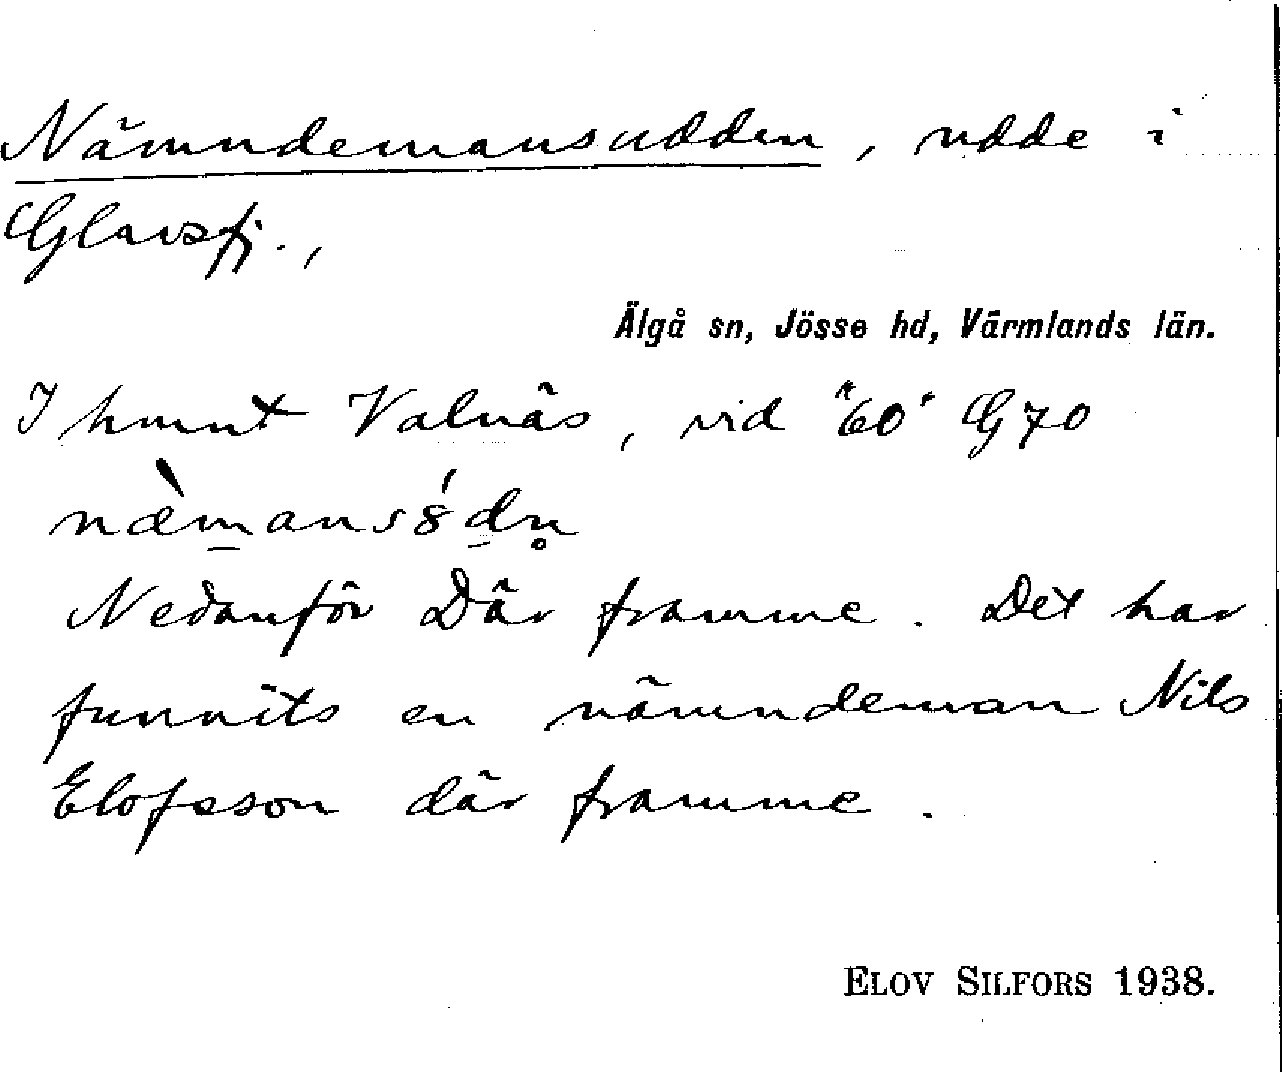 Nämndemansudden, udde i
Glavsfj.,
Älgå sn, Jösse hd, Värmlands län.
I hmnt Valnäs, vid "60" G70
næ̀m̱ans8́ḏn̥
Nedanför Där framme. Det har
funnits en nämndeman Nils
Elofsson där framme.
ELOV SILFORS 1938.